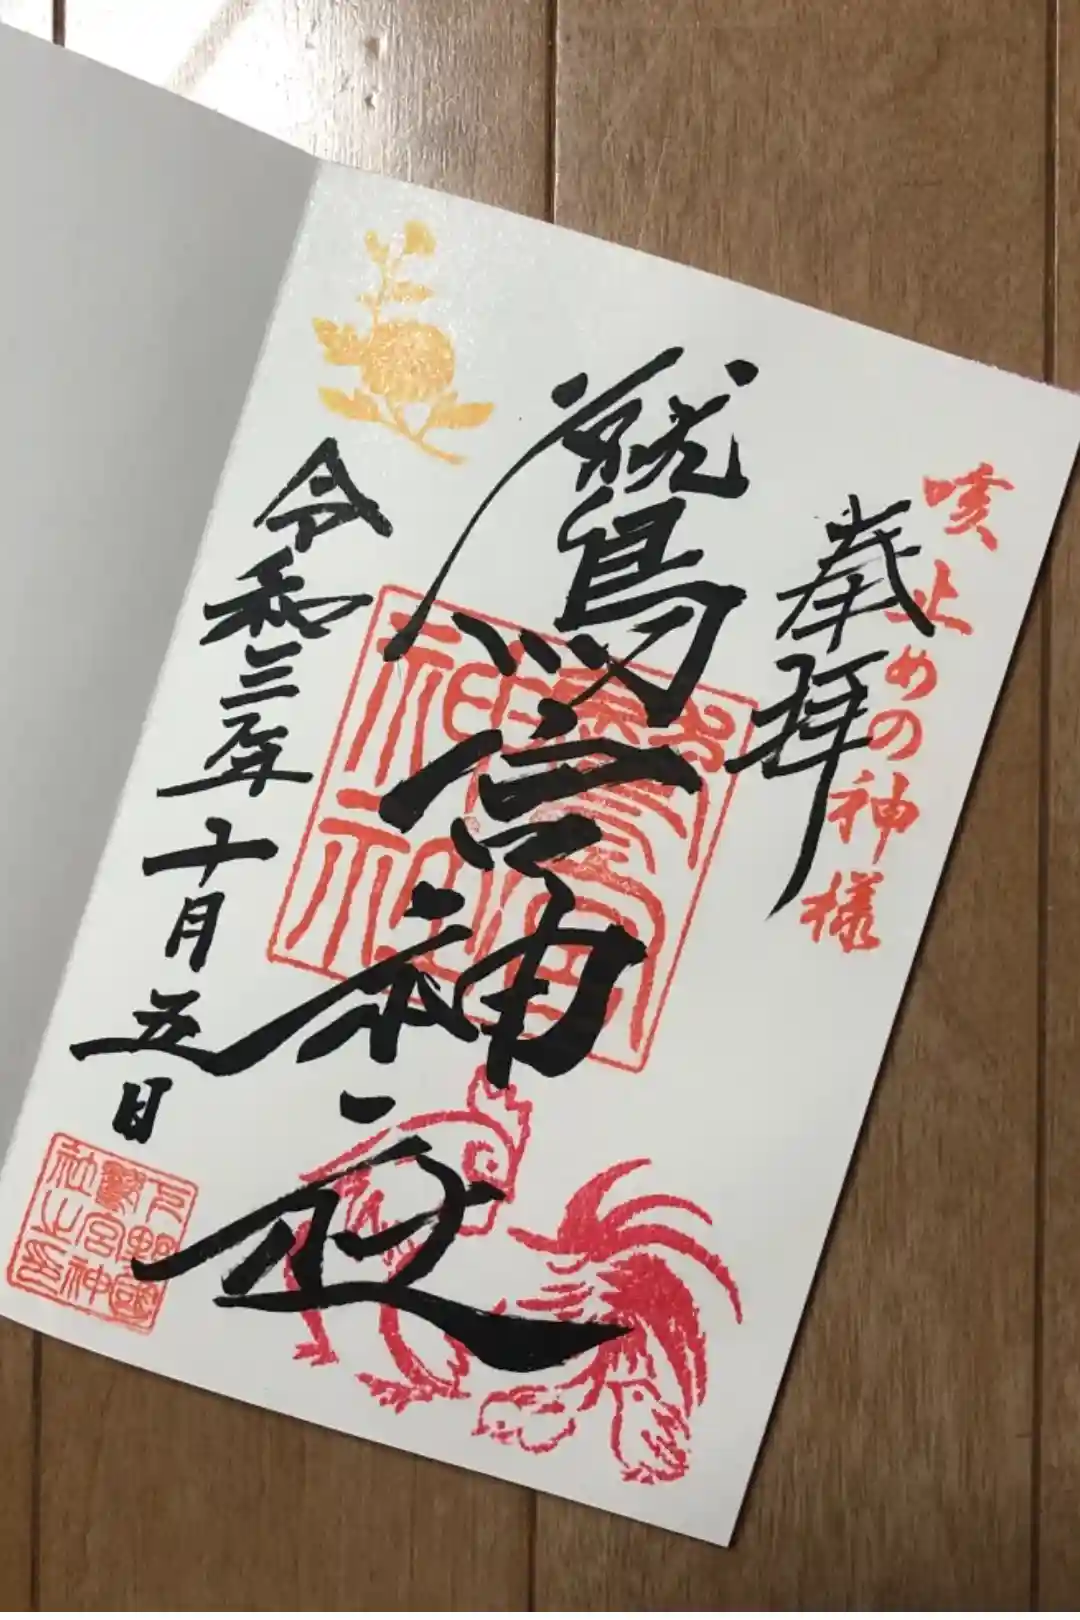 咳止めの神様
奉拝
鷲宮神社
鷲宮
神社
令和三年十月五日
下野國
鷲宮神
社之印